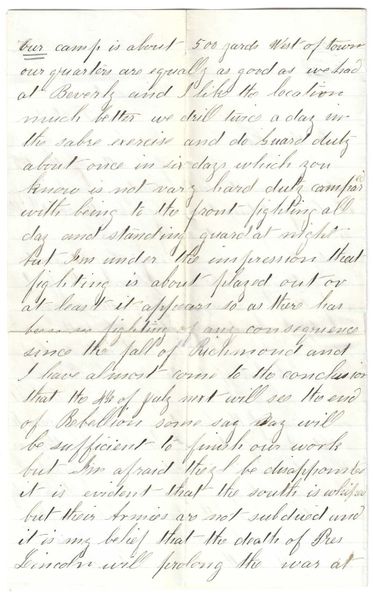 Our camp is about 500 yards West of town
our quarters are equally as good as we had
at Beverly and I like the location
much better we drill twice a day in
the sabre exercise and do guard duty
about once in six days which you
know is not vary hard duty compar'd
with being to the front fighting all
day and standing guard at night
but I'm under the impression that
fighting is about played out or
at least it appears so as there has
been no fighting of any consequence
since the fall of Richmond and
I have almost come to the conclusion
that the 4th of July next will see the end
of Rebellion some say May will
be sufficient to finish our work
but I'm afraid they'l be disappointed
it is evident that the south is whiped
but their Armies are not subdued and
it is my belief that the death of Pres
Lincoln will prolong the war at